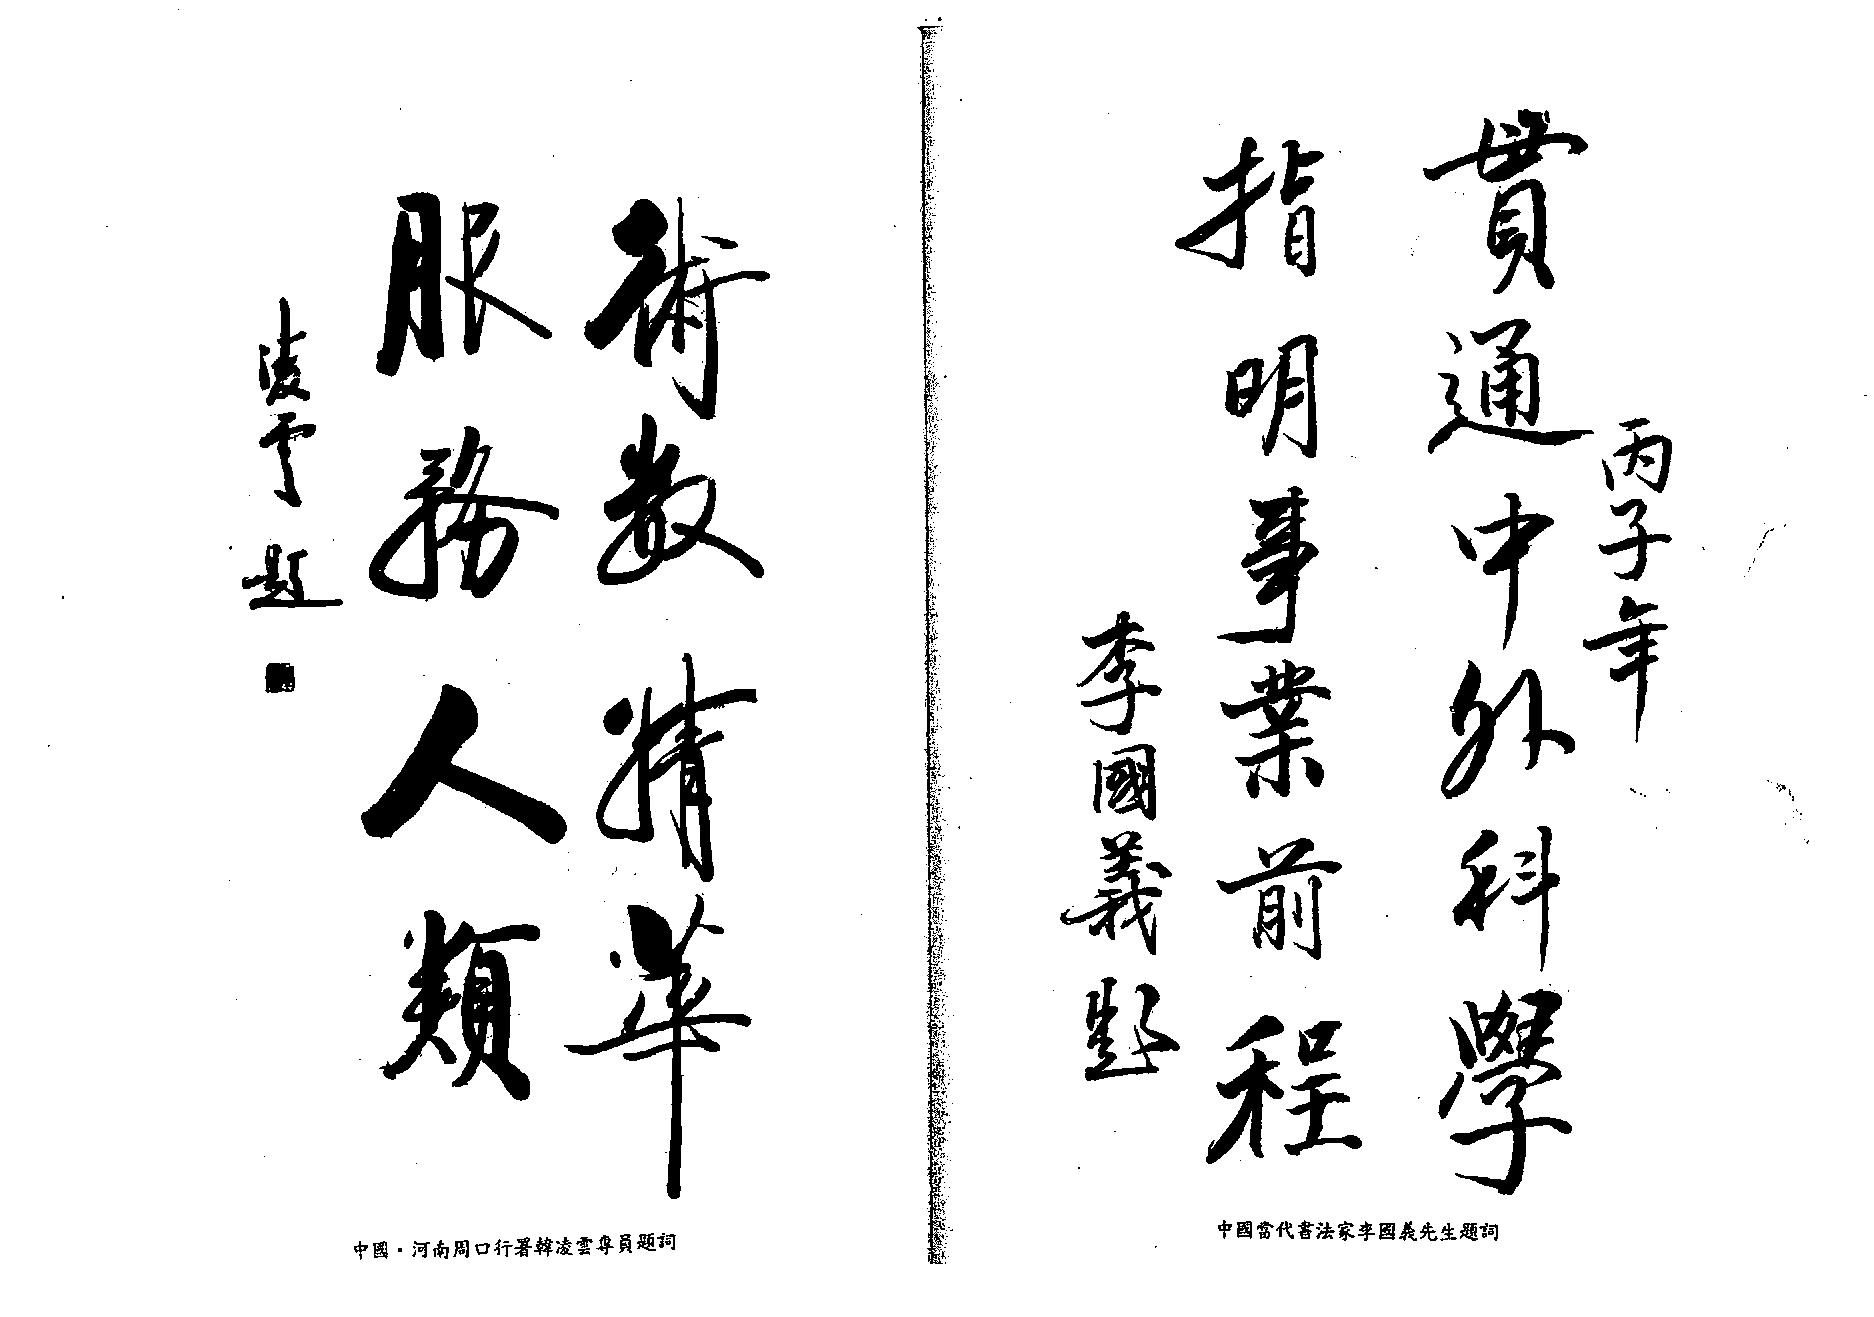 丙子年
貫通中外科學
指明事業前程
李國義題
中國當代書法家李國義先生題詞
術数精華
服務人類
凌雲題
中國·河南周口行署韓凌雲專員題詞